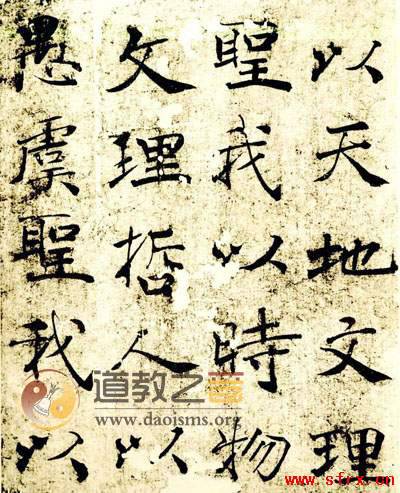 以天地文理
聖我以時物
文理哲人以
愚虞聖我以
道教之音
www.daoisms.org
www.sfrx.cn